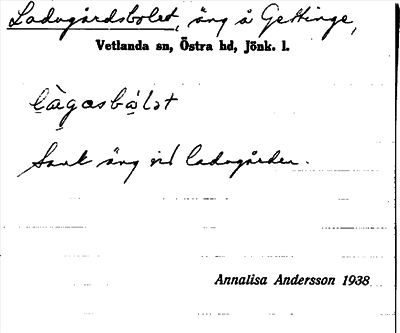 Ladugårdsbolet, äng å Gettinge,
Vetlanda sn, Östra hd, Jönk. l.
làgasbá̀lət
Sank äng vid ladugården.
Annalisa Andersson 1938